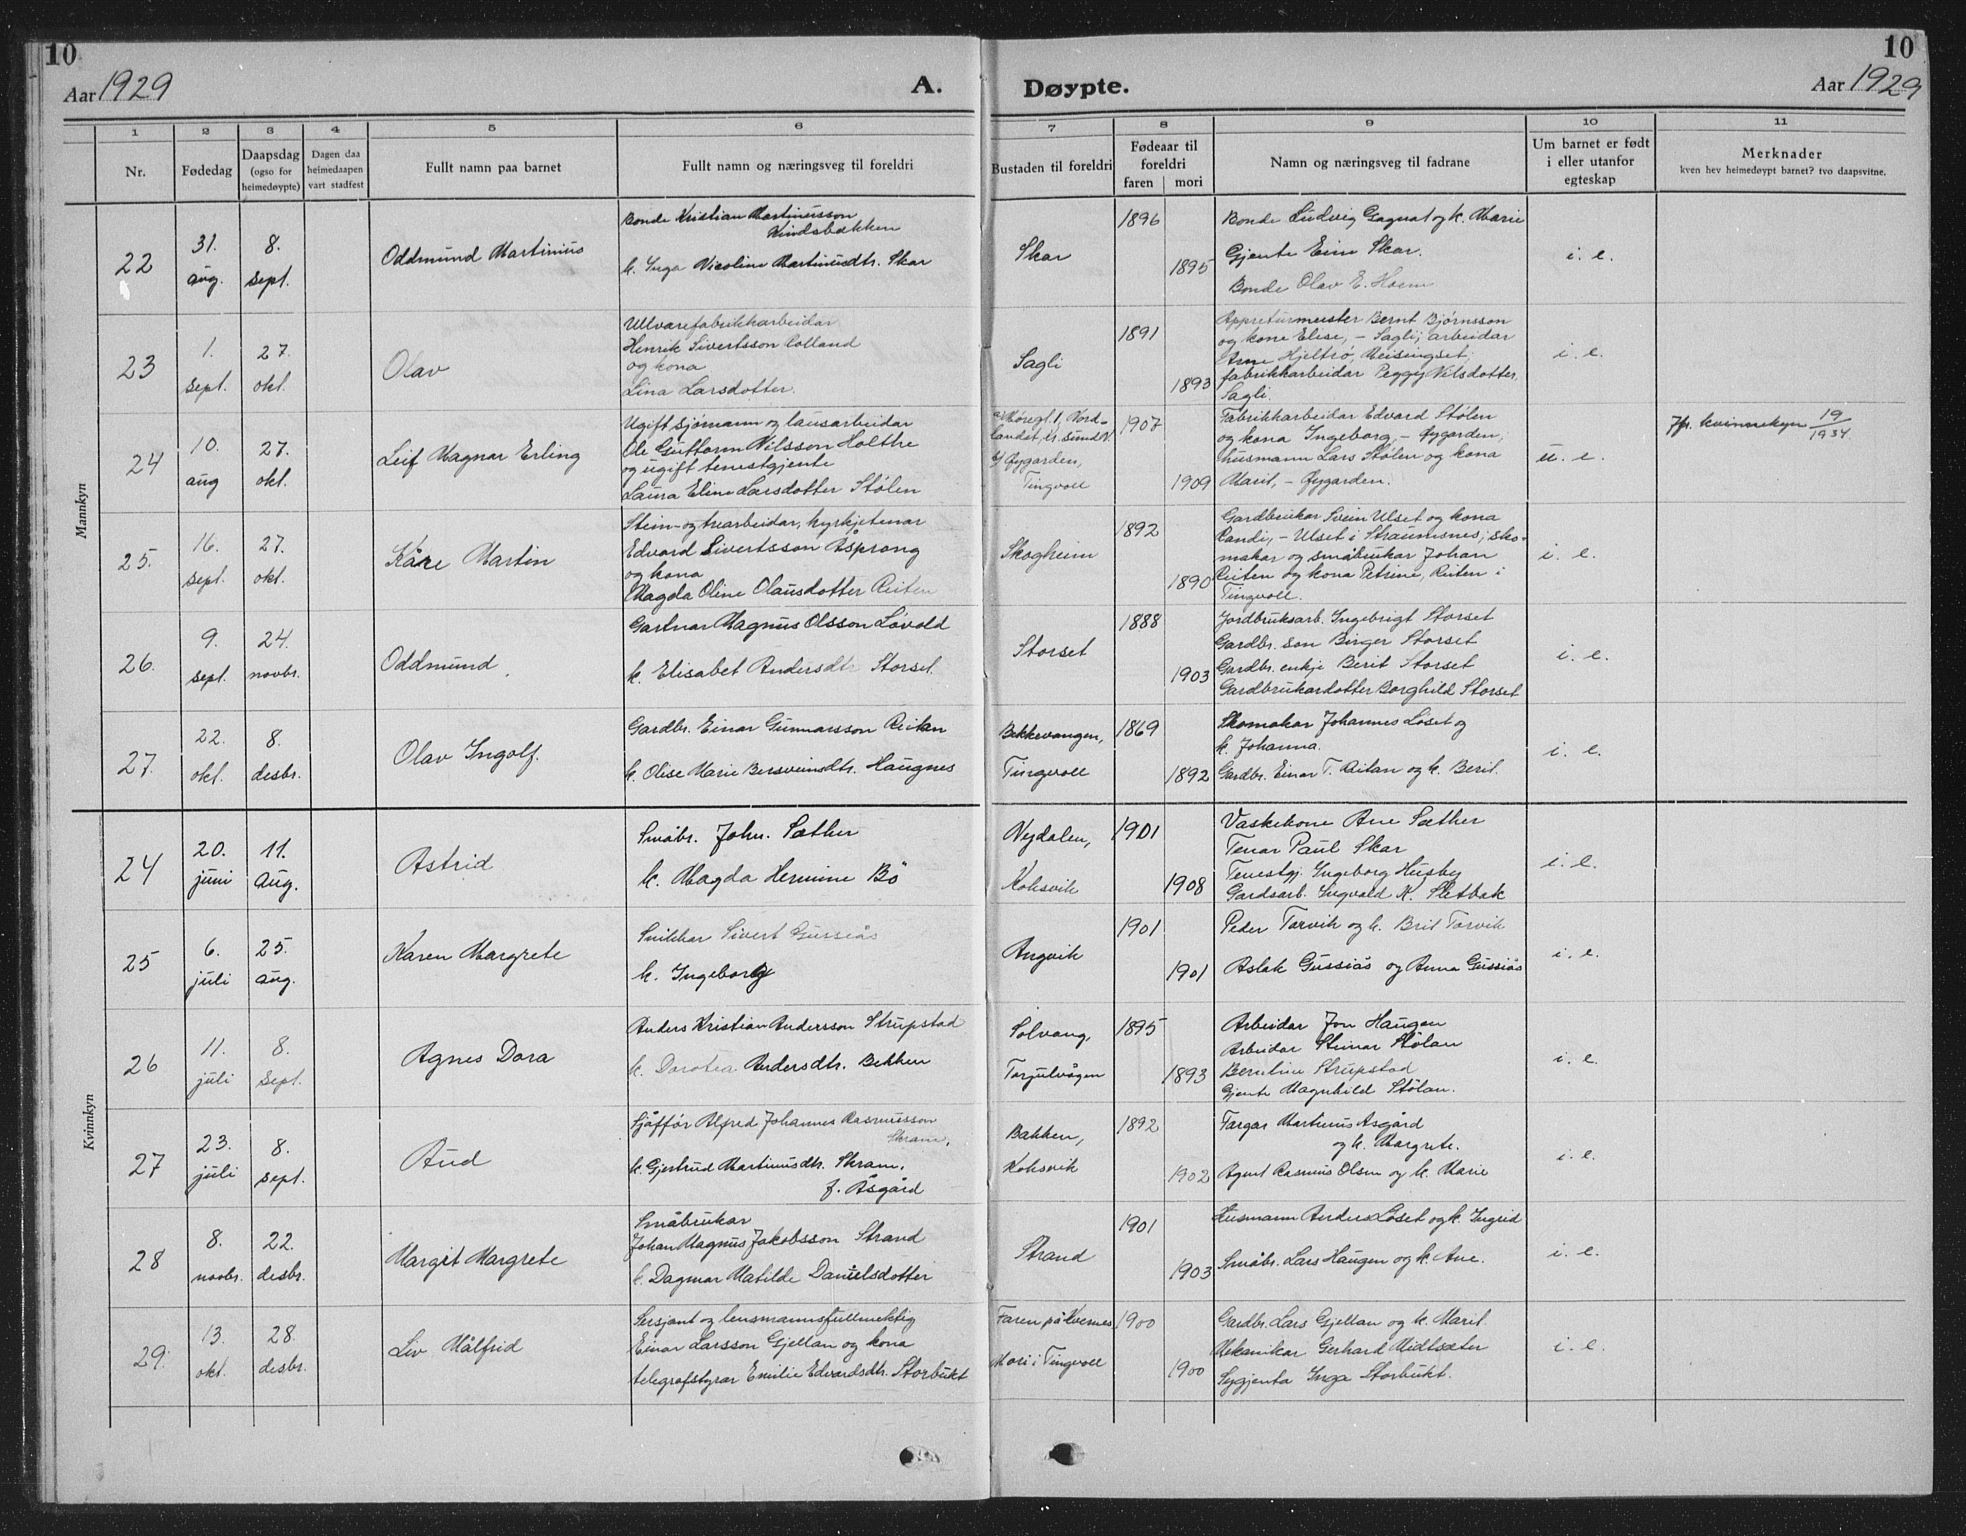 10
10
Aar 1929
A.
Døypte.
Aar 1929
1
2
3
4
5
6
7
8
9
10
11
Nr.
Fødedag
Daapsdag
(ogso for
heimedøypte)
Dagen daa
heimedaapen
vart stadfest
Fullt namn paa barnet
Fullt namn og næringsveg til foreldri
Bustaden til foreldri
Fødeaar til
foreldri
faren
mori
Namn og næringsveg til fadrane
Um barnet er født
i eller utanfor
egteskap
Merknader
kven hev heimedøypt barnet? tvo daapsvitne.
Mannkyn
22
31.
aug.
8.
sept.
Oddmund Martinius
Bonde Kristian Martinusson
Kindsbækken
k. Inga Nicoline Martinusdtr. Skar
Skar
1896
1895
Bonde Ludvig Gagnat og k. Marie
Gjente Eine Skar.
Bonde Olav E. Hoem
i. e.
23
1.
sept.
27.
okt.
Olav
Ullvarefabrikkarbeidar
Henrik Sivertsson Lolland
og kona
Lina Larsdotter.
Sagli
1891
1893
Appreturmeister Bernt Bjørnsson
og kone Elise, – Sagli; arbeidar
Arne Hjeltrø, Meisingset;
fabrikkarbeidar Peggy Nilsdotter,
Sagli.
i. e.
24
10.
aug
27.
okt.
Leif Magnar Erling
Ugift sjømann og lausarbeidar
Ole Guttorm Nilsson Holthe
og ugift tenestgjente
Laura Eline Larsdotter Stølen
a/ Møregt. 1, Nord-
landet, Kr. sund N.
b/ Øygarden,
Tingvoll
1907
1909
Fabrikkarbeidar Edvard Stølen
og kona Ingeborg, – Øygarden;
husmann Lars Stølen og kona
Marit, – Øygarden.
u. e.
Jfr. kvinnekyn 19/1934.
25.
16.
sept.
27.
okt.
Kåre Martin
Stein- og trearbeidar, kyrkjetenar
Edvard Sivertsson Åsprong
og kona
Magda Oline Olausdotter Reiten
Skogheim
1892
1890
Gardbrukar Svein Ulset og kona
Randi, – Ulset i Straumsnes; sko-
makar og småbrukar Johan
Reiten og kona Petrine, Reiten i
Tingvoll.
i. e.
26.
9.
sept.
24.
novbr.
Oddmund.
Gartnar Magnus Olsson Løvold
k. Elisabet Andersdtr. Storset.
Storset
1888
1903
Jordbruksarb. Ingebrigt Storset
Gardbr. son Birger Storset
Gardbr. enkje Berit Storset
Gardbrukardotter Borghild Storset
i. e.
27.
22.
okt.
8.
desbr.
Olav Ingolf.
Gardbr. Einar Gunnarsson Reitan
k. Olise Marie Bersveinsdtr. Haugnes
Bekkevangen,
Tingvoll
1869
1892
Skomakar Johannes Løset og
k. Johanna.
Gardbr. Einar T. Reitan og k. Berit.
i. e.
Kvinnkyn
24
20.
juni
11.
aug.
Astrid
Småbr. John. Sæther
k. Magda Hermine Bø
Nydalen,
Koksvik
1901
1908
Vaskekone Ane Sæther
Tenar Paul Skar
Tenestgj. Ingeborg Husby
Gardsarb. Ingvald K. Sletbak
i. e.
25
6.
juli
25.
aug.
Karen Margrete
Snikkar Sivert Gussiås
k. Ingeborg
Angvik
1901
1901
Peder Torvik og k. Brit Torvik
Aslak Gussiås og Anna Gussiås
i. e.
26
11.
juli
8.
Sept.
Agnes Dora
Anders Kristian Andersson Strupstad
k. Dorotea Andersdtr. Bekken
Solvang,
Torjulvågen
1895
1893
Arbeidar Jon Haugen
Arbeidar Steinar Stølan
Berntine Strupstad
Gjente Magnhild Stølan.
i. e.
27
23.
juli
8.
sept.
Aud
Sjåffør Alfred Johannes Rasmusson
Skram.
k. Gjertrud Martinusdtr. Skram,
f. Åsgård
Bakken,
Koksvik
1892
1902
Fargar Martinus Asgård
og k. Margrete.
Agent Rasmus Olsen og k. Marie
i. e.
28
8.
novbr.
22.
desbr.
Margit Margrete
Småbrukar
Johan Magnus Jakobsson Strand
k. Dagmar Matilde Danielsdotter
Strand
1901
1903
Husmann Anders Løset og k. Ingrid
Småbr. Lars Haugen og k. Ane.
i. e.
29.
13.
okt.
28.
desbr.
Liv Målfrid
Sersjant og lensmannsfullmektig
Einar Larsson Gjellan og kona
telegrafstyrar Emilie Edvardsdtr. Storbukt
Faren på Kvernes
Mori i Tingvoll
1900
1900
Gardbr. Lars Gjellan og k. Marit.
Mekanikar Gerhard Midtsæter
Sygjenta Inga Storbukt.
i. e.